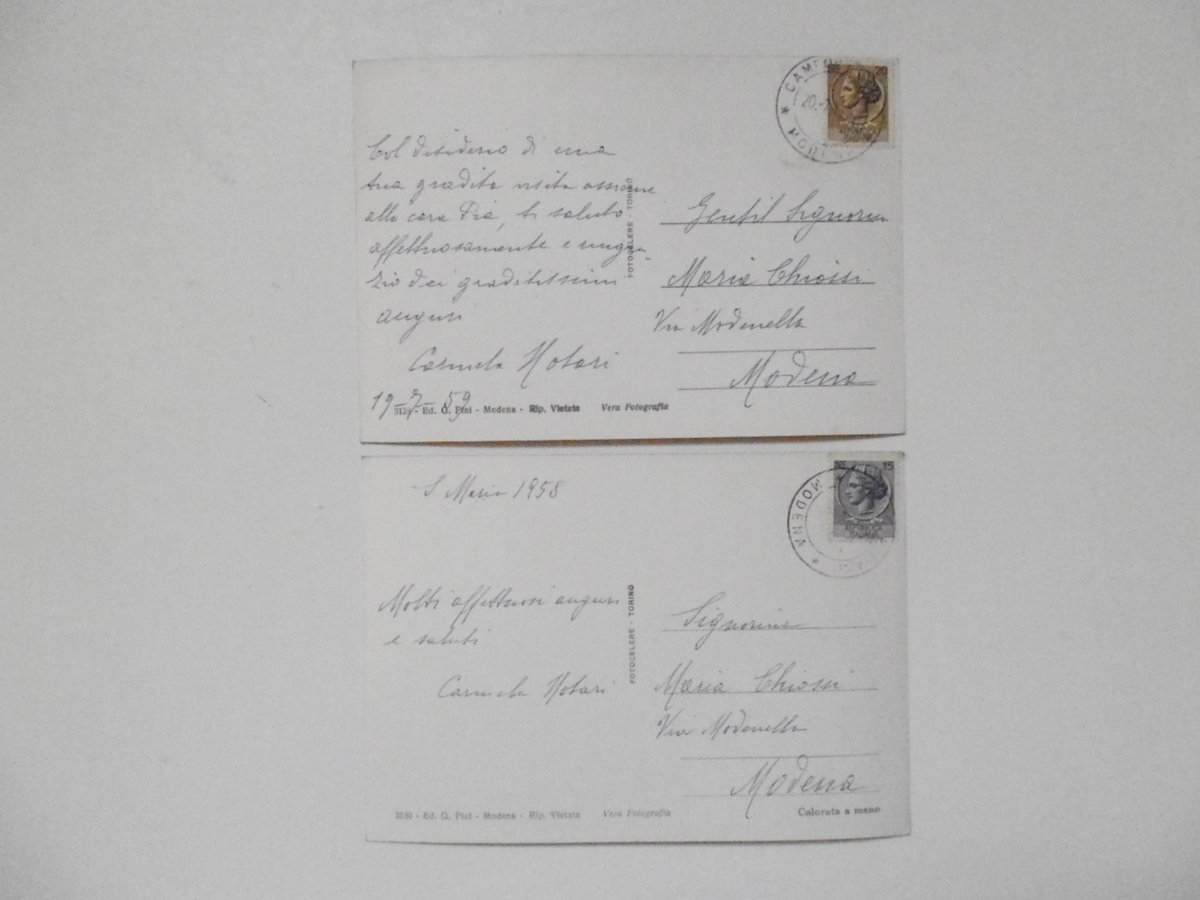 Col desiderio di una
tua gradita visita assieme
alla cara Pia, ti saluto
affettuosamente e ringra-
zio dei graditissimi
auguri
Carmela Notari
19-7-59
FOTOCELERE - TORINO
Gentil Signorina
Maria Chiossi
Via Modenella
Modena
Ed. G. Pini - Modena - Rip. Vietata Vera Fotografia
20
S. Maria 1958
MODENA
15
Molti affettuosi auguri
e saluti
Carmela Notari
FOTOCELERE - TORINO
Signorina
Maria Chiossi
Via Modenella
Modena
3130 - Ed. G. Pini - Modena - Rip. Vietata Vera Fotografia
Colorata a mano